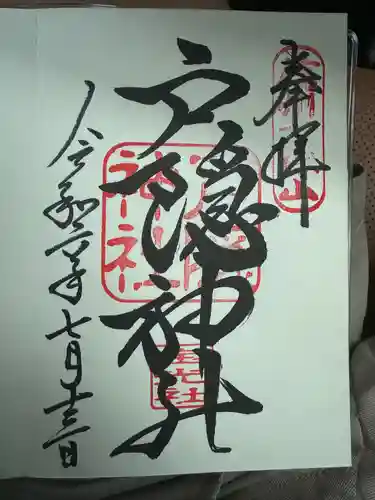 奉拝
戸隠神社
令和六年七月十三日
戸隠
神社
宝光社